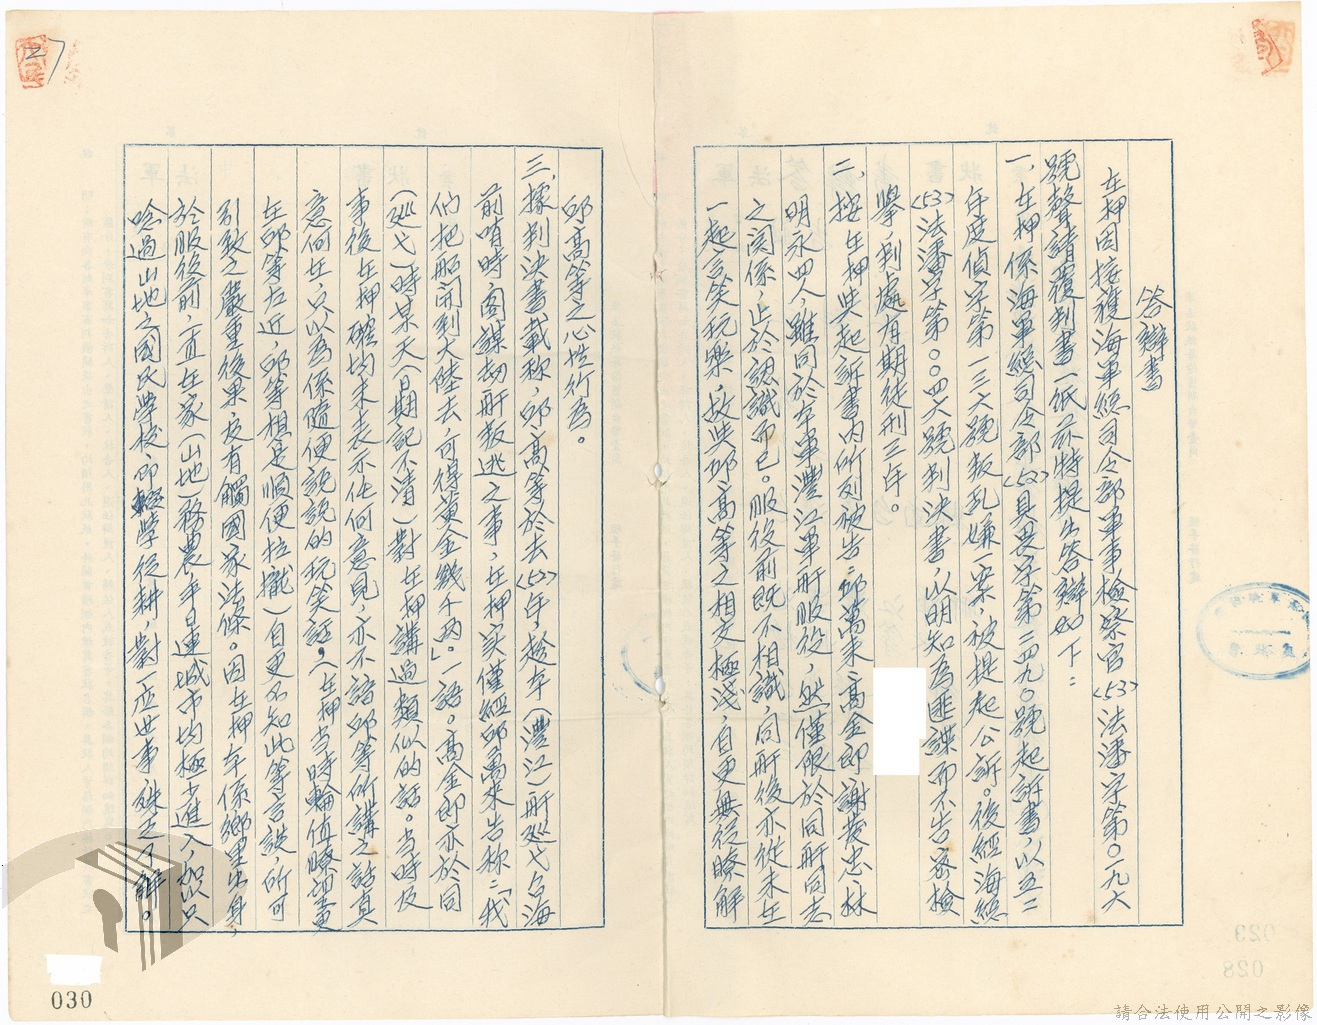 答辯書
在押因接獲海軍總司令部軍事檢察官(53)法潘字第〇一九六
號聲請覆判書一紙茲特提出答辯如下：
一、在押係海軍總司令部(52)具畏字第三四九〇號起訴書，以五二
年度偵字第一三六號叛亂嫌一案，被提起公訴。後經海總
(53)法潘字第〇〇四六號判決書，以明知為匪諜而不告密檢
舉判處有期徒刑三年。
二、按在押與起訴書內所列被告：邱萬來、高金郎、謝發忠、林
明永四人，雖同於本軍灃江軍艦服役，然僅限於同艦同志
之關係，止於認識而已。服役前既不相識，同艦後亦從未在
一起言笑玩樂，故與邱高等之相交極淺，自更無從瞭解
邱高等之心性行為。
三、據判決書載稱，邱高等於去(52)年趁本（灃江）艦巡弋台海
前哨時陰謀劫艦叛逃之事，在押実僅經邱萬來告称：「我
們把船開到大陸去，可得黃金幾千兩。」一語。高金郎亦於同
（巡弋）時某天（日期記不清）對在押講過類似的話。当時及
事後在押確均未表示任何意見，亦不諳邱等所講之話真
意何在，只以為係隨便說說的玩笑話，（在押当時輪值瞭望更
在邱等左近，邱等想是順便拉攏）自更不知此等言談，所可
引致之嚴重後果，及有觸國家法條。因在押本係鄉里出身，
於服役前，一直在家（山地）務農，平日連城市均極少進入，加以只
唸過山地之國民學校，即輟學從耕，對一應世事殊乏了解。
27
030
029
028
請合法使用公開之影像